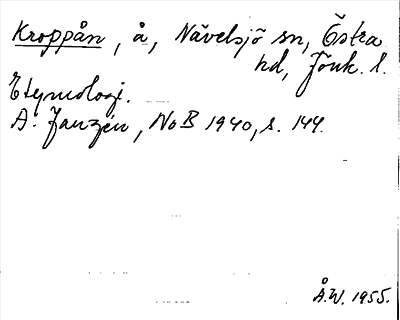 Kroppån, å, Nävelsjö sn, Östra
hd, Jönk. l.
Etymologi.
A. Janzén, NoB 1940, s. 144.
Å.W. 1955.